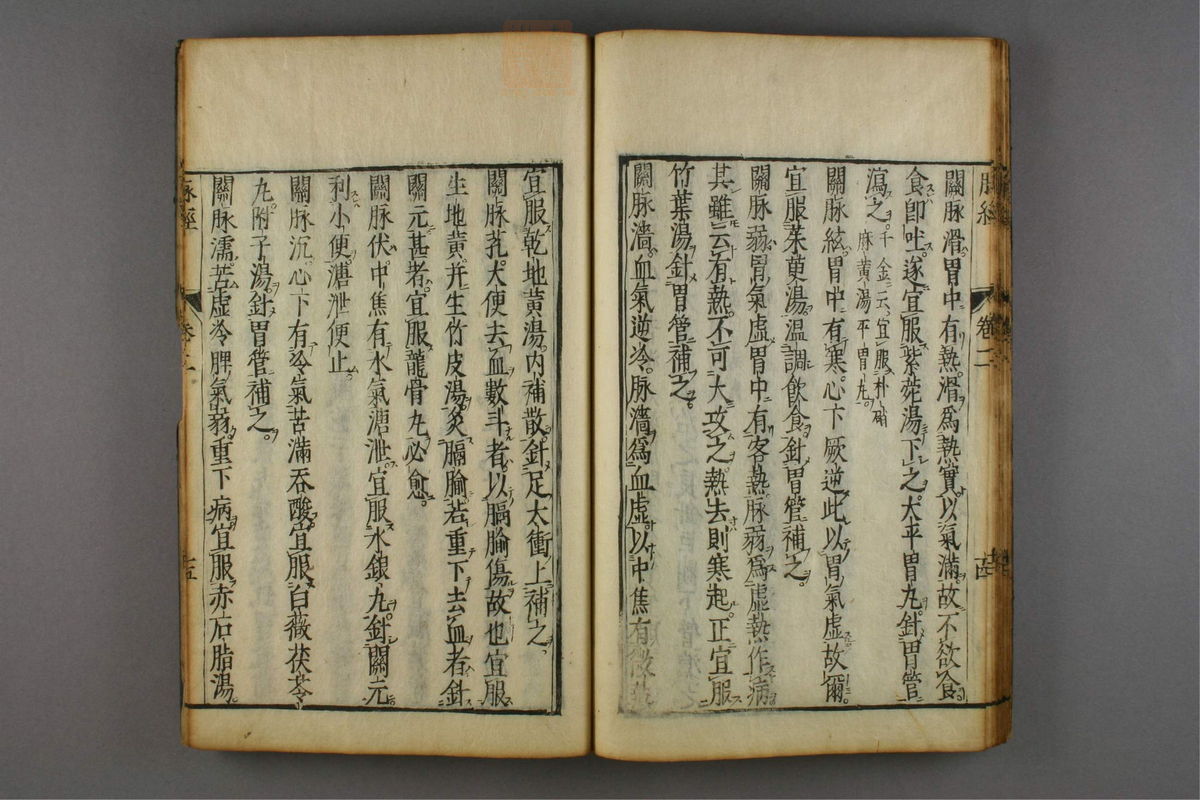 關脉滑胃中有熱滑爲熱實以氣滿故不欲食
食卽吐逆宜服紫菀湯下之大平胃丸針胃管
瀉之千金云宜服朴硝
麻黄湯平胃丸
關脉絃胃中有寒心下厥逆此以胃氣虛故爾
宜服茱萸湯溫調飲食針胃管補之
關脉弱胃氣虛胃中有客熱脉弱爲虛熱作病
其雖云有熱不可大攻之熱去則寒起正宜服
竹葉湯針胃管補之
關脉濇血氣逆冷脉濇爲血虛以中焦有微熱
宜服乾地黄湯内補散針足太衝上補之
關脉芤大便去血數斗者以膈腧傷故也宜服
生地黄并生竹皮湯灸膈腧若重下去血者針
關元甚者宜服龍骨丸必愈
關脉伏中焦有水氣溏泄宜服水銀丸針關元
利小便溏泄便止
關脉沉心下有冷氣苦滿吞酸宜服白薇茯苓
丸附子湯針胃管補之
關脉濡苦虛冷脾氣弱重下病宜服赤石脂湯
脉經
卷二